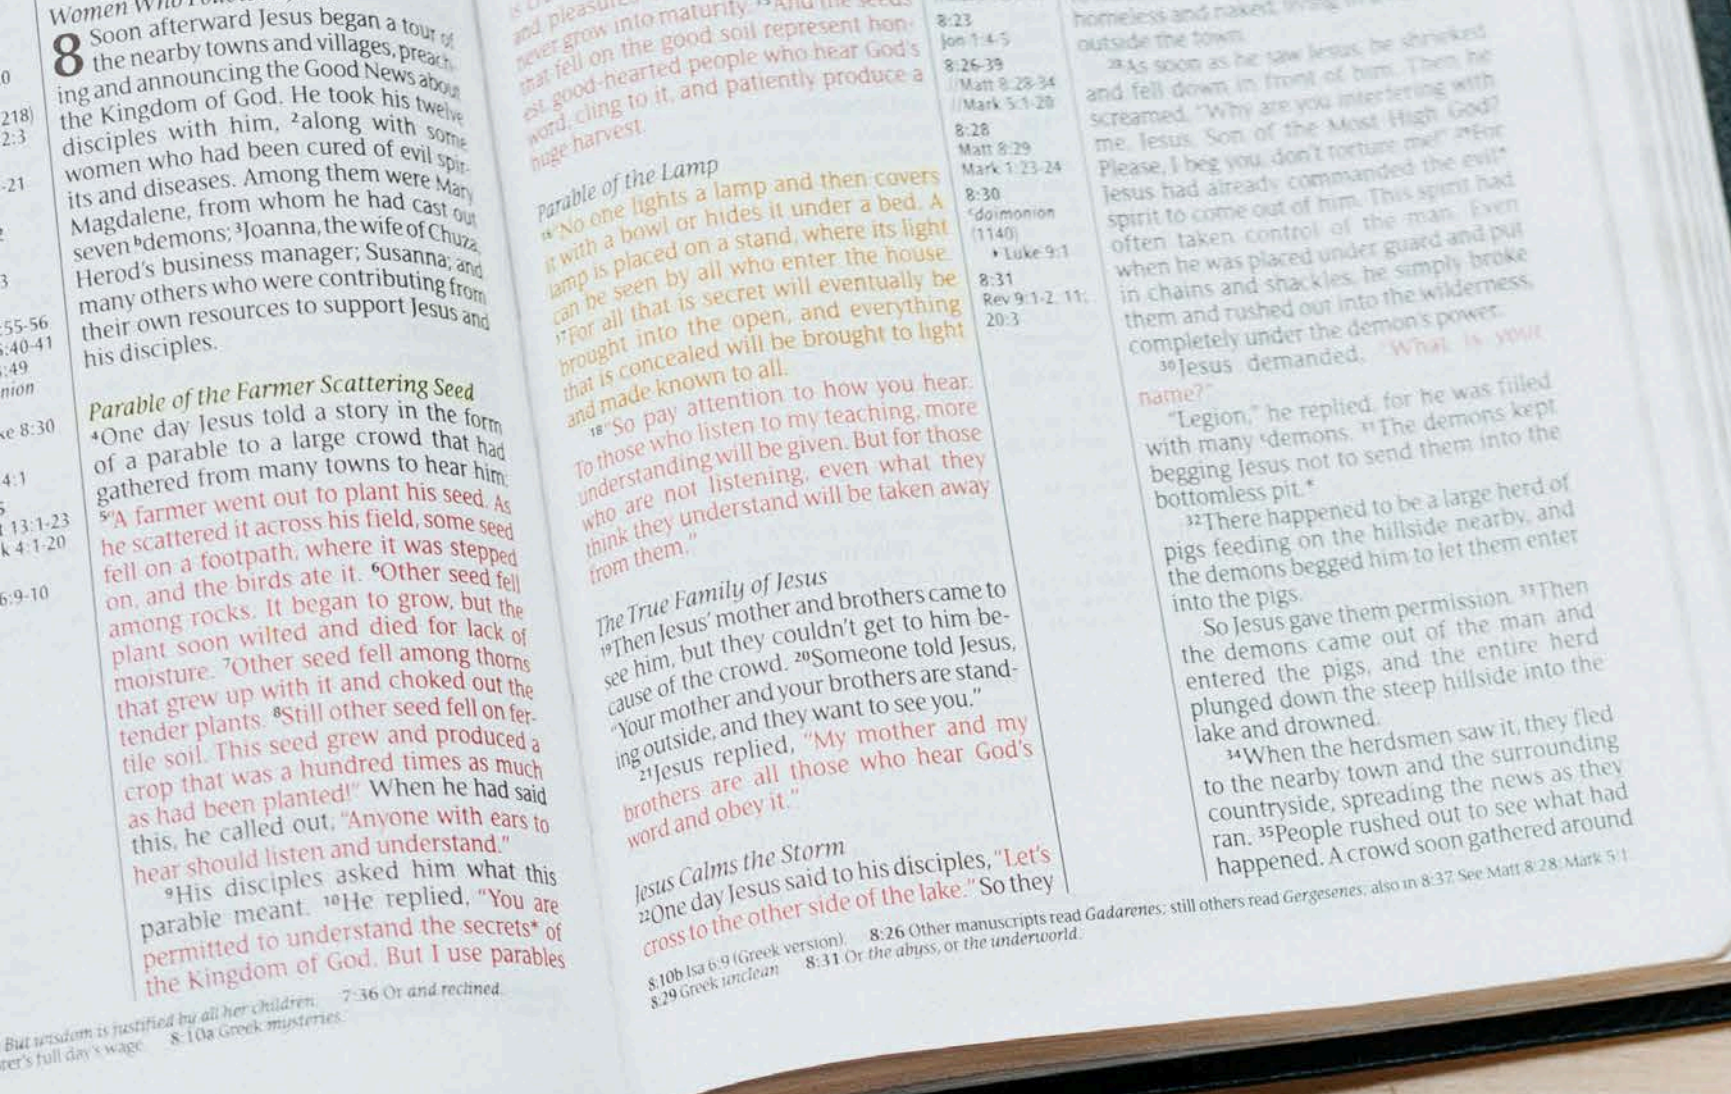 8 Soon afterward Jesus began a tour of
the nearby towns and villages, preach-
ing and announcing the Good News about
the Kingdom of God. He took his twelve
disciples with him, ²along with some
women who had been cured of evil spir-
its and diseases. Among them were Mary
Magdalene, from whom he had cast out
seven ᵇdemons; ³Joanna, the wife of Chuza,
Herod's business manager; Susanna; and
many others who were contributing from
their own resources to support Jesus and
his disciples.
Parable of the Farmer Scattering Seed
⁴One day Jesus told a story in the form
of a parable to a large crowd that had
gathered from many towns to hear him:
⁵"A farmer went out to plant his seed. As
he scattered it across his field, some seed
fell on a footpath, where it was stepped
on, and the birds ate it. ⁶Other seed fell
among rocks. It began to grow, but the
plant soon wilted and died for lack of
moisture. ⁷Other seed fell among thorns
that grew up with it and choked out the
tender plants. ⁸Still other seed fell on fer-
tile soil. This seed grew and produced a
crop that was a hundred times as much
as had been planted!" When he had said
this, he called out, "Anyone with ears to
hear should listen and understand."
⁹His disciples asked him what this
parable meant. ¹⁰He replied, "You are
permitted to understand the secrets* of
the Kingdom of God. But I use parables
But wisdom is justified by all her children. 7:36 Or and reclined.
full day's wage. 8:10a Greek mysteries.
218)
2:3
-21
:55-56
:40-41
:49
nion
8:30
4:1
13:1-23
4:1-20
6:9-10
and pleasures
never grow into maturity. ¹⁵And the seeds
that fell on the good soil represent hon-
est, good-hearted people who hear God's
word, cling to it, and patiently produce a
huge harvest.
Parable of the Lamp
¹⁶"No one lights a lamp and then covers
it with a bowl or hides it under a bed. A
lamp is placed on a stand, where its light
can be seen by all who enter the house.
¹⁷For all that is secret will eventually be
brought into the open, and everything
that is concealed will be brought to light
and made known to all.
¹⁸"So pay attention to how you hear.
To those who listen to my teaching, more
understanding will be given. But for those
who are not listening, even what they
think they understand will be taken away
from them."
The True Family of Jesus
¹⁹Then Jesus' mother and brothers came to
see him, but they couldn't get to him be-
cause of the crowd. ²⁰Someone told Jesus,
"Your mother and your brothers are stand-
ing outside, and they want to see you."
²¹Jesus replied, "My mother and my
brothers are all those who hear God's
word and obey it."
Jesus Calms the Storm
²²One day Jesus said to his disciples, "Let's
cross to the other side of the lake." So they
8:10b Isa 6:9 (Greek version). 8:26 Other manuscripts read Gadarenes; still others read Gergesenes; also in 8:37. See Matt 8:28; Mark 5:1.
8:29 Greek unclean 8:31 Or the abyss, or the underworld.
8:23
Jon 1:4-5
8:26-39
//Matt 8:28-34
//Mark 5:1-20
8:28
Matt 8:29
Mark 1:23-24
8:30
ᶜdaimonion
(1140)
Luke 9:1
8:31
Rev 9:1-2, 11;
20:3
homeless and naked, living in
outside the town.
²⁸As soon as he saw Jesus, he shrieked
and fell down in front of him. Then he
screamed, "Why are you interfering with
me, Jesus, Son of the Most High God?
Please, I beg you, don't torture me!" ²⁹For
Jesus had already commanded the evil*
spirit to come out of him. This spirit had
often taken control of the man. Even
when he was placed under guard and put
in chains and shackles, he simply broke
them and rushed out into the wilderness,
completely under the demon's power.
³⁰Jesus demanded, "What is your
name?"
"Legion," he replied, for he was filled
with many ᶜdemons. ³¹The demons kept
begging Jesus not to send them into the
bottomless pit.*
³²There happened to be a large herd of
pigs feeding on the hillside nearby, and
the demons begged him to let them enter
into the pigs.
So Jesus gave them permission. ³³Then
the demons came out of the man and
entered the pigs, and the entire herd
plunged down the steep hillside into the
lake and drowned.
³⁴When the herdsmen saw it, they fled
to the nearby town and the surrounding
countryside, spreading the news as they
ran. ³⁵People rushed out to see what had
happened. A crowd soon gathered around